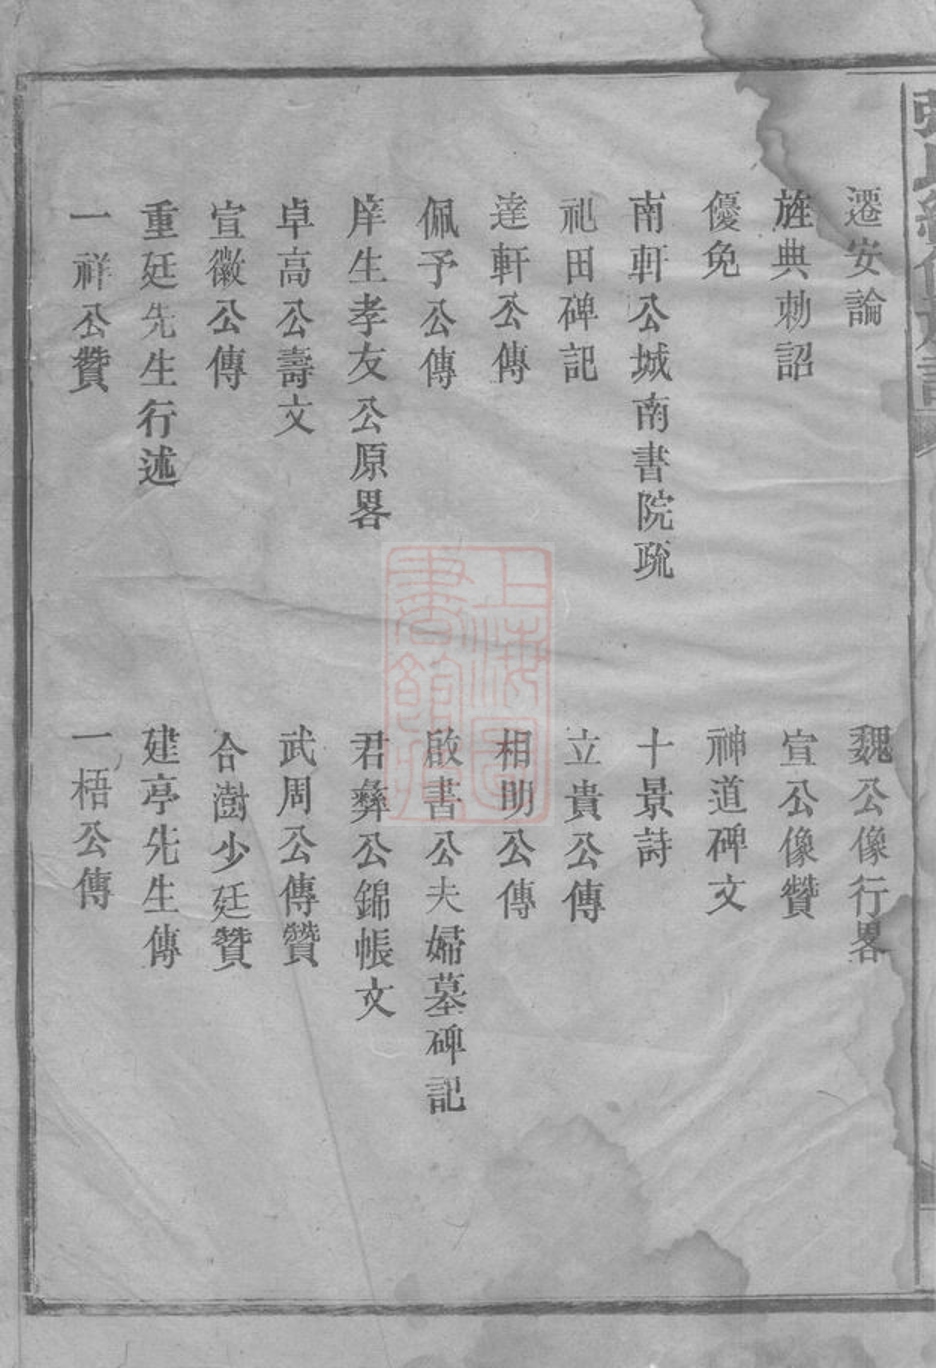 遷安論
魏公像行畧
旌典勅詔
宣公像贊
優免
神道碑文
南軒公城南書院疏
十景詩
祀田碑記
立貴公傳
達軒公傳
相明公傳
佩予公傳
啟書公夫婦墓碑記
庠生孝友公原畧
君彝公錦帳文
卓高公壽文
武周公傳贊
宣徽公傳
合澍少廷贊
重廷先生行述
建亭先生傳
一祥公贊
一梧公傳
上海圖書館藏